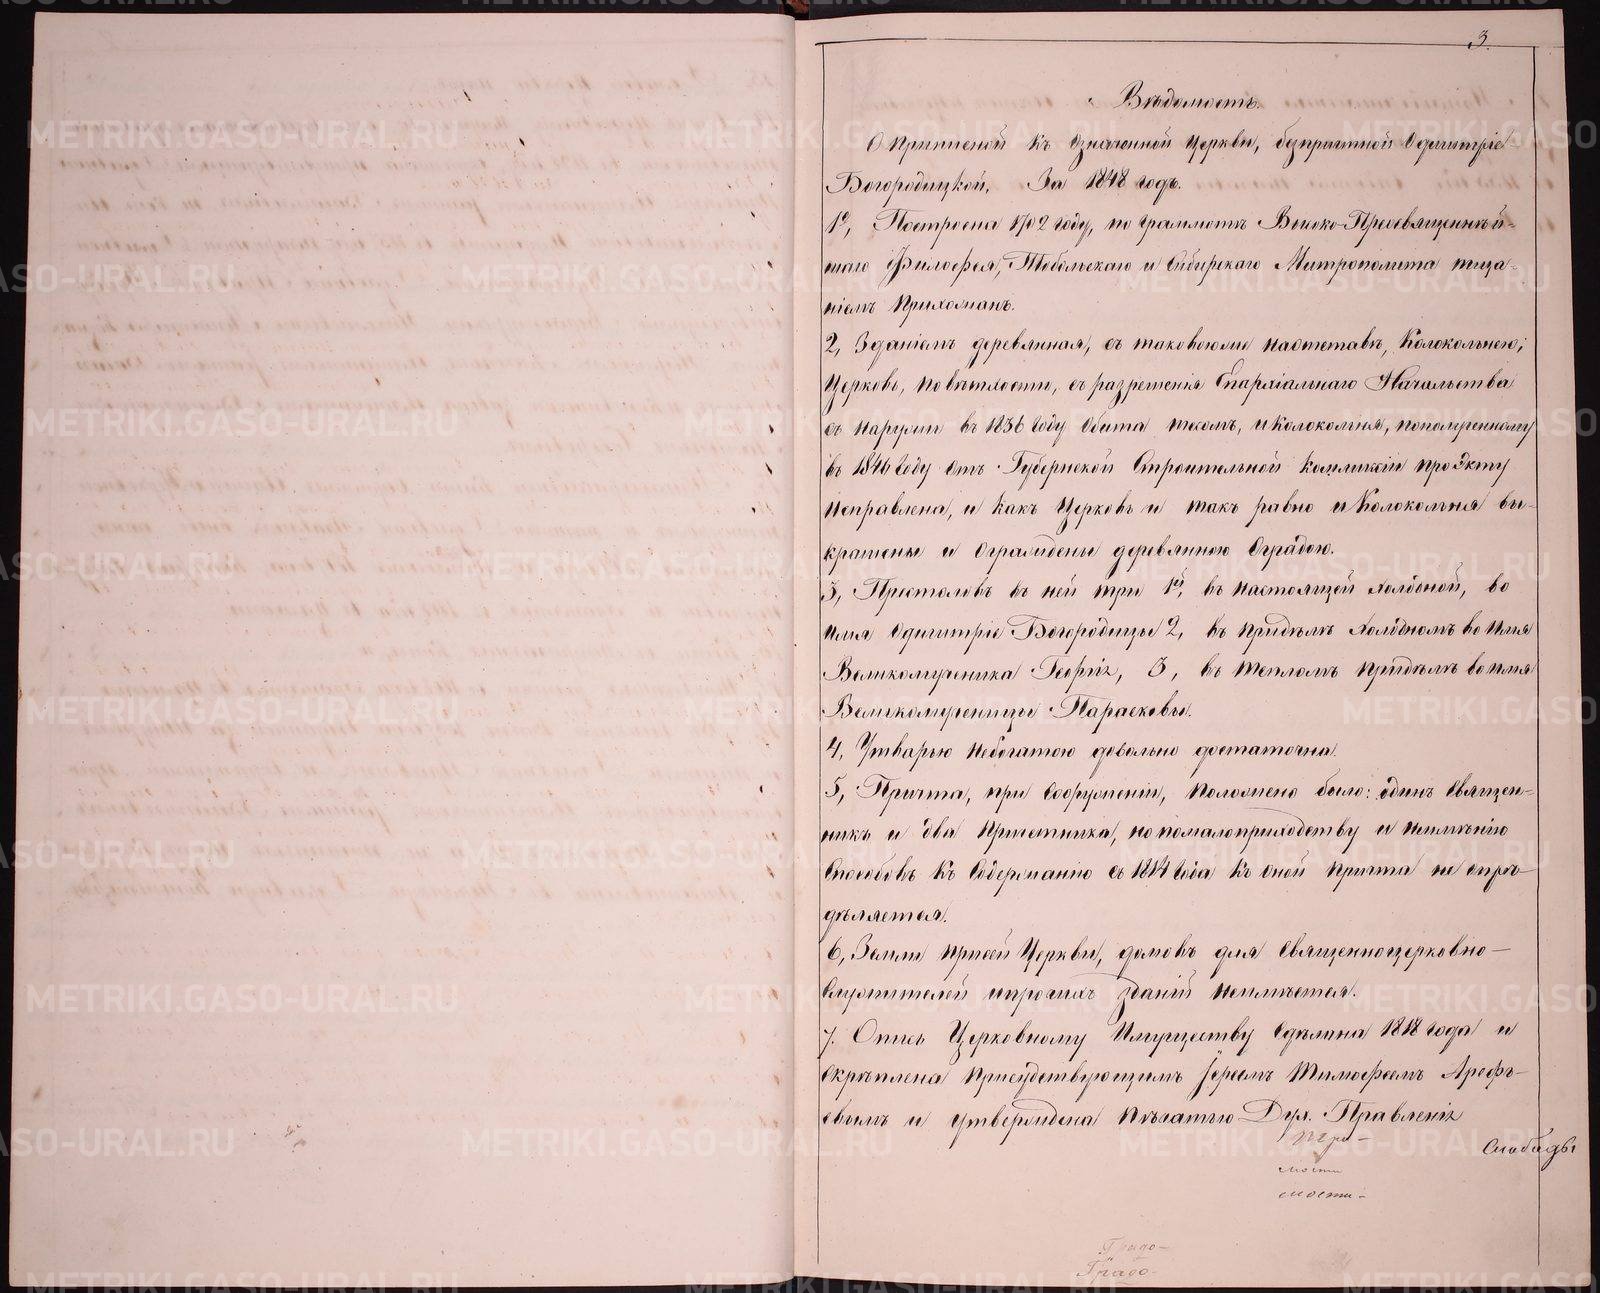 3.
Вѣдомость.
О приписной къ означенной Церкви, безпричтной Одигитріе-
Богородицкой. За 1848 годъ.
1е, Построена 1702 году, по граммотѣ Высоко-Преосвященнѣй-
шаго Филофея, Тобольскаго и Сибирскаго Митрополита тща-
ніемъ прихожанъ.
2, Зданіемъ деревянная, съ таковоюже на отставѣ, Колокольнею;
Церковь, по вѣтхости, съ разрешенія Епархіальнаго Начальства
съ наружи въ 1836 году обита тесомъ, и колокольня, по полученному
въ 1846 году отъ Губернской Строительной Коммисіи проэкту
исправлена, и какъ Церковь и такъ равно и Колокольня вы-
крашены и ограждены деревянною оградою.
3, Престоловъ въ ней три 1й, въ настоящей холодной, во
имя Одигитріе Богородицы 2, въ придѣлѣ холодномъ во имя
Великомученика Георгія, 3, въ тепломъ придѣлѣ во имя
Великомученицы Параскевы.
4, Утварью небогатою довольно достаточна.
5, Причта, при сооруженіи, положено было: одинъ Священ-
никъ и два причетника, но по малоприходству и неимѣнію
способовъ къ содержанію съ 1814 года къ оной причта не опрѣ-
дѣляется.
6, Земли при сей Церкви, домовъ для Священноцерковно-
служителей и прочихъ зданій неимѣется.
7. Опись Церковному Имуществу сдѣлана 1818 года и
скрѣплена присудствующимъ Іереемъ Тимофеемъ Арефь-
евымъ и утверждена пѣчатью Дух. Правленія
Слободы
мости
мости-
Градо-
Градо-
METRIKI.GASO-URAL.RU